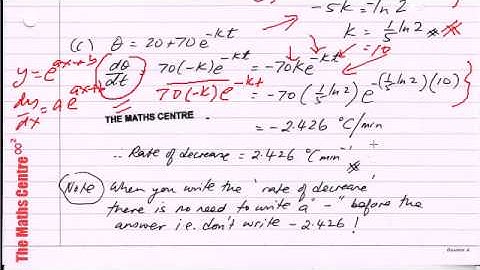 -5k = -ln 2
k = 1/5 ln 2
(c) θ = 20 + 70e^-kt
= 10
y = e^ax+b
dθ/dt = 70(-k)e^-kt = -70ke^-kt
dy/dx = ae^ax+b
70(-k)e^-kt = -70(1/5 ln 2)e^-(1/5 ln 2)(10)
THE MATHS CENTRE
= -2.426 °C/min
∴ Rate of decrease = 2.426 °C min^-1
Note When you write the 'rate of decrease'
there is no need to write a "-" before the
answer i.e. don't write -2.426 !
The Maths Centre ∞